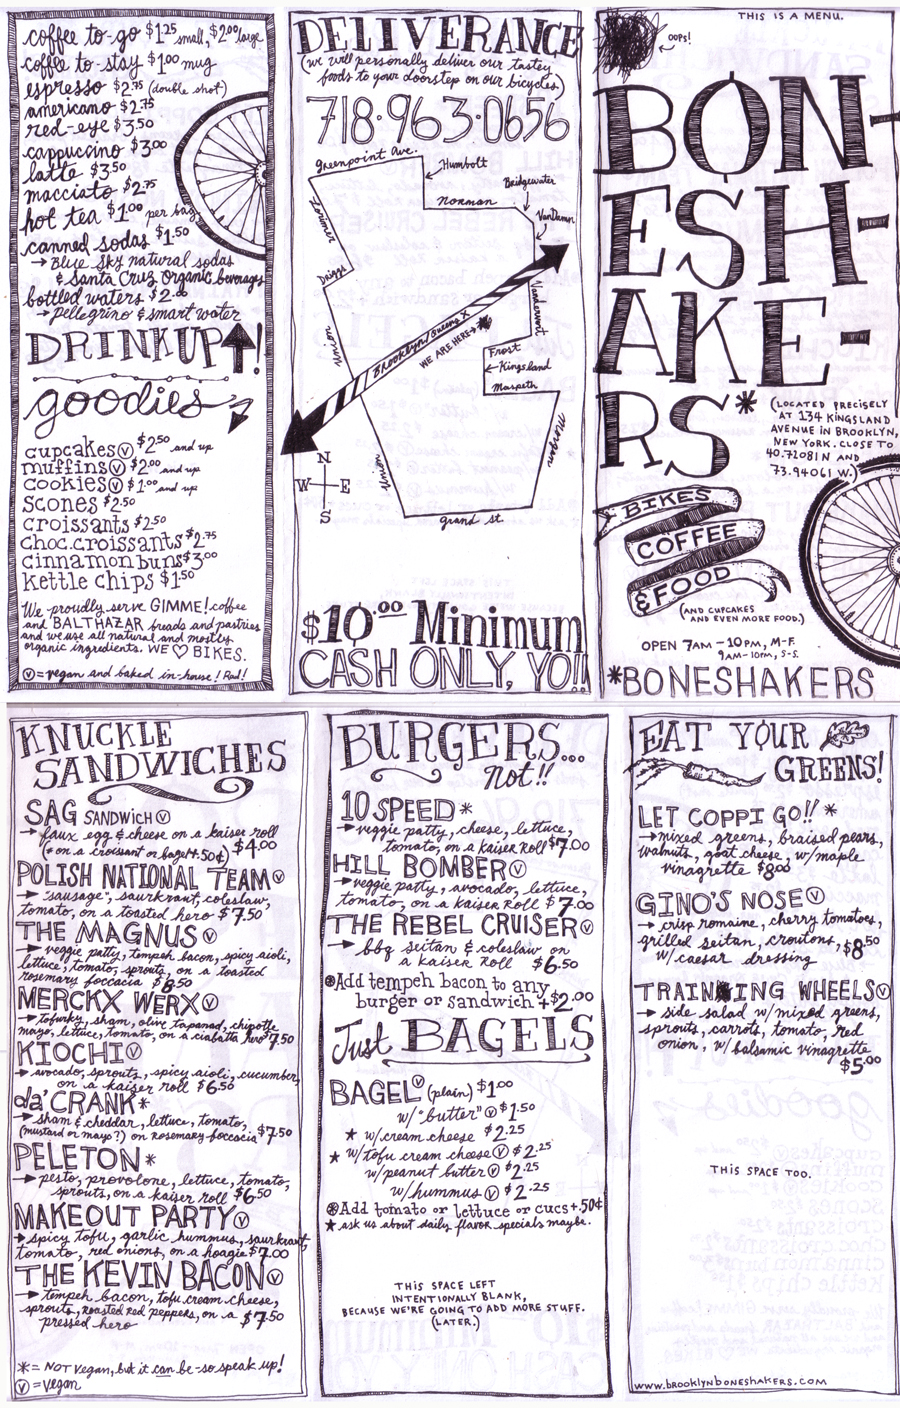 coffee to-go $1.25 small, $2.00 large
coffee to-stay $1.00 mug
espresso $2.75 (double shot)
americano $2.75
red-eye $3.50
cappuccino $3.00
latte $3.50
macciato $2.75
hot tea $1.00 per bag
canned sodas $1.50
→ Blue Sky natural sodas
& Santa Cruz Organic beverages
bottled waters $2.00
→ pellegrino & smart water
DRINK UP!
goodies
cupcakes Ⓥ $2.50 and up
muffins Ⓥ $2.00 and up
cookies Ⓥ $1.00 and up
scones $2.50
croissants $2.50
choc.croissants $2.75
cinnamon buns $3.00
kettle chips $1.50
We proudly serve GIMME! coffee
and BALTHAZAR breads and pastries
and we use all natural and mostly
organic ingredients. WE ♡ BIKES.
Ⓥ = vegan and baked in-house! Rad!
DELIVERANCE
(we will personally deliver our tasty
foods to your doorstep on our bicycles)
718·963·0656
Greenpoint Ave.
Humbolt
Bridgewater
Norman
VanDamn
Lorimer
Driggs
Union
Brooklyn/Queens X
WE ARE HERE →
Vandervoort
Frost
Kingsland
Maspeth
Morgan
Union
grand st.
N
W E
S
$10.00 Minimum
CASH ONLY, YO!!
THIS IS A MENU.
OOPS!
BON-
ESH-
AKE-
RS*
(LOCATED PRECISELY
AT 134 KINGSLAND
AVENUE IN BROOKLYN,
NEW YORK. CLOSE TO
40.71081N AND
73.94061 W.)
BIKES
COFFEE
& FOOD
(AND CUPCAKES
AND EVEN MORE FOOD.)
OPEN 7AM – 10PM, M-F.
9AM-10PM, S-S.
*BONESHAKERS
KNUCKLE
SANDWICHES
SAG SANDWICH Ⓥ
→ faux egg & cheese on a kaiser roll
(* on a croissant or bagel +.50¢) $4.00
POLISH NATIONAL TEAM Ⓥ
→ "sausage", saurkraut, coleslaw,
tomato, on a toasted hero $7.50
THE MAGNUS Ⓥ
→ veggie patty, tempeh bacon, spicy aioli,
lettuce, tomato, sprouts, on a toasted
rosemary foccacia $8.50
MERCKX WERX Ⓥ
→ tofurky, sham, olive tapanad, chipotle
mayo, lettuce, tomato, on a ciabatta hero $7.50
KIOCHI Ⓥ
→ avocado, sprouts, spicy aioli, cucumber,
on a kaiser roll $6.50
da' CRANK*
→ sham & cheddar, lettuce, tomato,
(mustard or mayo?) on rosemary foccacia $7.50
PELETON*
→ pesto, provolone, lettuce, tomato,
sprouts, on a kaiser roll $6.50
MAKEOUT PARTY Ⓥ
→ spicy tofu, garlic hummus, saurkraut,
tomato, red onions, on a hoagie $7.00
THE KEVIN BACON Ⓥ
→ tempeh bacon, tofu cream cheese,
sprouts, roasted red peppers, on a
pressed hero $7.50
* = NOT vegan, but it can be - so speak up!
Ⓥ = vegan
BURGERS...
Not!!
10 SPEED*
→ veggie patty, cheese, lettuce,
tomato, on a kaiser roll $7.00
HILL BOMBER Ⓥ
→ veggie patty, avocado, lettuce,
tomato, on a kaiser roll $7.00
THE REBEL CRUISER Ⓥ
→ bbq seitan & coleslaw on
a kaiser roll $6.50
⊛ Add tempeh bacon to any
burger or sandwich + $2.00
Just BAGELS
BAGEL Ⓥ (plain) $1.00
w/ "butter" Ⓥ $1.50
★ w/ cream cheese $2.25
★ w/ tofu cream cheese Ⓥ $2.25
w/ peanut butter Ⓥ $2.25
w/ hummus Ⓥ $2.25
⊛ Add tomato or lettuce or cucs +.50¢
★ ask us about daily flavor specials maybe.
THIS SPACE LEFT
INTENTIONALLY BLANK,
BECAUSE WE'RE GOING TO ADD MORE STUFF.
(LATER.)
EAT YOUR
GREENS!
LET COPPI GO!! *
→ mixed greens, braised pears,
walnuts, goat cheese, w/ maple
vinagrette $8.00
GINO'S NOSE Ⓥ
→ crisp romaine, cherry tomatoes,
grilled seitan, croutons,
w/ caesar dressing $8.50
TRAINING WHEELS Ⓥ
→ side salad w/ mixed greens,
sprouts, carrots, tomato, red
onion, w/ balsamic vinagrette
$5.00
THIS SPACE TOO.
WWW.BROOKLYNBONESHAKERS.COM